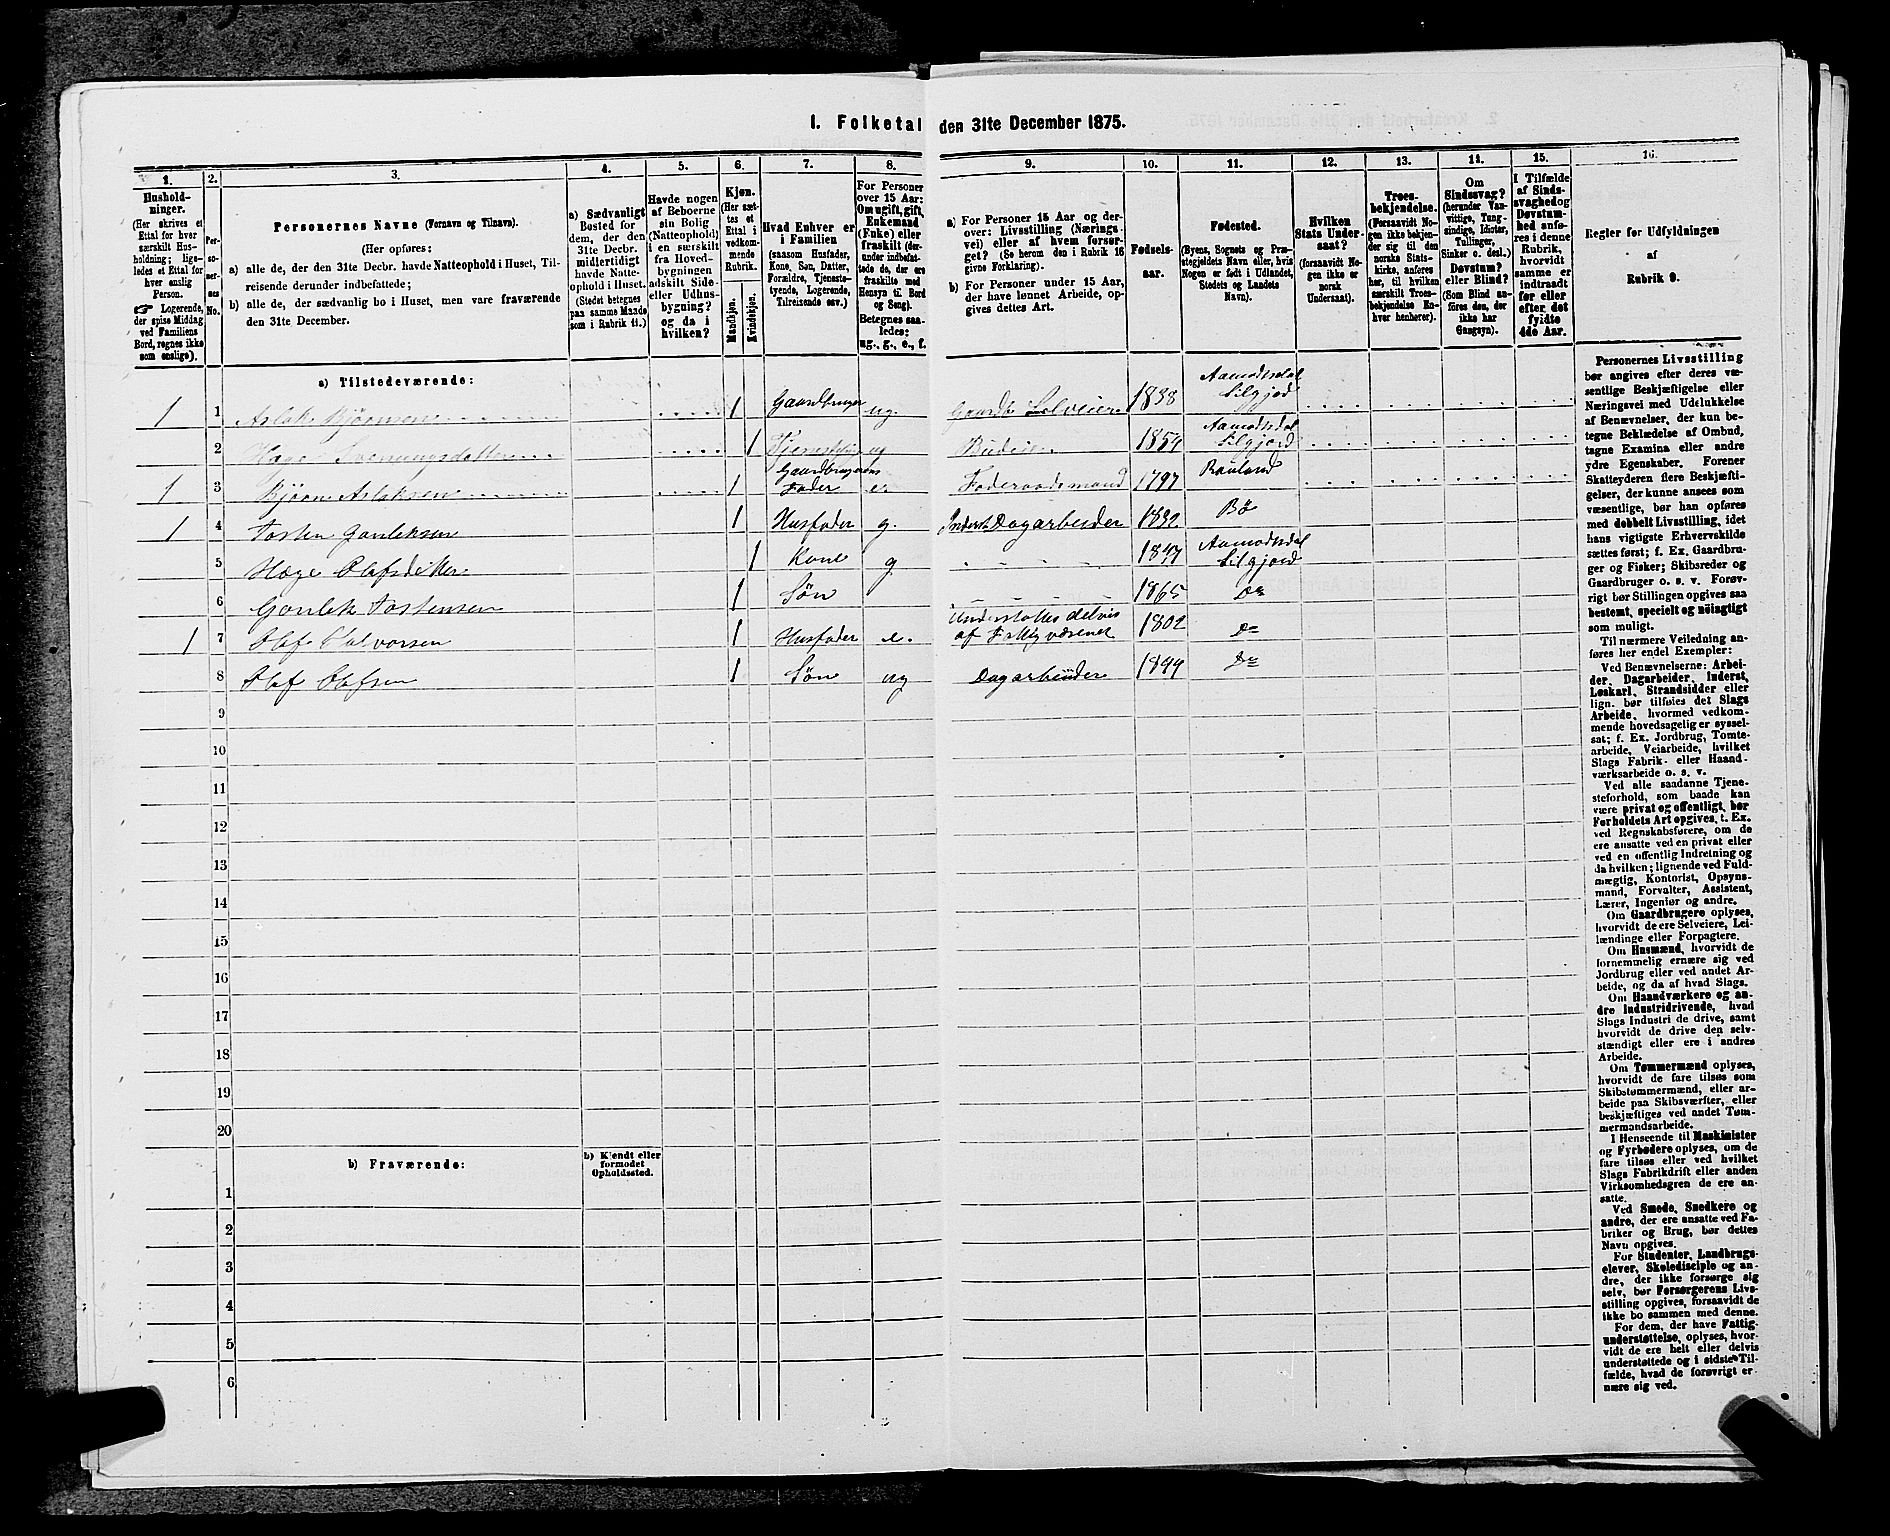 1. Folketal den 31te December 1875.
1. 2. 3. 4. 5. 6. 7. 8. 9. 10. 11. 12. 13. 14. 15. 16.
Hushold-
ninger.
(Her skrives et
Ettal for hver
særskilt Hus-
holdning; lige-
ledes et Ettal for
hver enslig
Person.
☞ Logerende,
der spise Middag
ved Familiens
Bord, regnes ikke
som enslige).
Per-
so-
ner-
nes
No.
Personernes Navne (Fornavn og Tilnavn).
(Her opføres:
a) alle de, der den 31te Decbr. havde Natteophold i Huset, Til-
reisende derunder indbefattede;
b) alle de, der sædvanlig bo i Huset, men vare fraværende
den 31te December.
a) Sædvanligt
Bosted for
dem, der den
31te Decbr.
midlertidigt
havde Natte-
ophold i Huset.
(Stedet betegnes
paa samme Maade
som i Rubrik 11.)
Havde nogen
af Beboerne
sin Bolig
(Natteophold)
i en særskilt
fra Hoved-
bygningen
adskilt Side-
eller Udhus-
bygning?
og da i
hvilken?
Kjøn.
(Her sæt-
tes et
Ettal i
vedkom-
mende
Rubrik.
Mandkjøn.
Kvindekjøn.
Hvad Enhver er
i Familien
(saasom Husfader,
Kone, Søn, Datter,
Forældre, Tjeneste-
tyende, Logerende,
Tilreisende osv.)
For Personer
over 15 Aar:
Om ugift, gift,
Enkemand
(Enke) eller
fraskilt (der-
under indbefat-
tede de, der ere
fraskilte med
Hensyn til Bord
og Seng).
Betegnes saa-
ledes:
ug., g., e., f.
a) For Personer 15 Aar og der-
over: Livsstilling (Nærings-
vei) eller af hvem forsør-
get? (Se herom den i Rubrik 16
givne Forklaring).
b) For Personer under 15 Aar,
der have lønnet Arbeide, op-
gives dettes Art.
Fødsels-
aar.
Fødested.
(Byens, Sognets og Præ-
stegjeldets Navn eller, hvis
Nogen er født i Udlandet,
Stedets og Landets
Navn).
Hvilken
Stats Under-
saat?
(forsaavidt No-
gen ikke er
norsk
Undersaat).
Troes-
bekjendelse.
(Forsaavidt No-
gen ikke bekjen-
der sig til den
norske Stats-
kirke, anføres
her, til hvilken
særskilt Troes-
bekjendelse En-
hver henhører).
Om
Sindssvag?
(herunder Van-
vittige, Tung-
sindige, Idioter,
Tullinger,
Sinker o. desl.)
Døvstum?
eller Blind?
(Som Blind an-
føres den, der
ikke har
Gangsyn).
I Tilfælde
af Sinds-
svaghed og
Døvstum-
hed anfø-
res i denne
Rubrik,
hvorvidt
samme er
indtraadt
før eller
efter det
fyldte
4de Aar.
Regler for Udfyldningen
af
Rubrik 9.
a) Tilstedeværende:
1 1 Aslak Bjørnsen 1 Gaardbruger ug. Gaardb. Selveier 1838 Aamodtsdal Silgjord
2 Hæge Svenungsdatter 1 ug Budeie 1854 Aamodtsdal Silgjord
1 3 Bjørn Aslaksen 1 Gaardbrugerens Fader e. Føderaadsmand 1797 Rauland
1 4 Tosten Gonleksen 1 Husfader g. Inderst Dagarbeider 1832 Bø
5 Hæge Olafsdatter 1 Kone g 1847 Aamodtsdal Silgjord
6 Gonlek Tostensen 1 Søn 1865 Do
1 7 Olaf Halvorsen 1 Husfader e. Understøttes delvis af Fattigvæsenet 1802 Do
8 Olaf Olafsen 1 Søn ug Dagarbeider 1844 Do
9
10
11
12
13
14
15
16
17
18
19
20
b) Fraværende:
b) Kjendt eller
formodet
Opholdssted.
1
2
3
4
5
6
Personernes Livsstilling
bør angives efter deres væ-
sentlige Beskjæftigelse eller
Næringsvei med Udelukkelse
af Benævnelser, der kun be-
tegne Beklædelse af Ombud,
tagne Examina eller andre
ydre Egenskaber. Forener
Skatteyderen flere Beskjæfti-
gelser, der kunne ansees som
væsentlige, bør han opføres
med dobbelt Livsstilling, idet
hans vigtigste Erhvervskilde
sættes først; f. Ex. Gaardbru-
ger og Fisker; Skibsreder og
Gaardbruger o. s. v. Forøv-
rigt bør Stillingen opgives saa
bestemt, specielt og nøiagtigt
som muligt.
Til nærmere Veiledning an-
føres her endel Exempler:
Ved Benævnelserne: Arbei-
der, Dagarbeider, Inderst,
Løskarl, Strandsidder eller
lign. bør tilføies det Slags
Arbeide, hvormed vedkom-
mende hovedsagelig er syssel-
sat; f. Ex. Jordbrug, Tomte-
arbeide, Veiarbeide, hvilket
Slags Fabrik- eller Haand-
værksarbeide o. s. v.
Ved alle saadanne Tjene-
steforhold, som baade kan
være privat og offentligt, bør
Forholdets Art opgives, t. Ex.
ved Regnskabsførere, om de
ere ansatte ved en privat eller
ved en offentlig Indretning og
da hvilken; lignende ved Fuld-
mægtig, Kontorist, Opsyns-
mand, Forvalter, Assistent,
Lærer, Ingeniør og andre.
Om Gaardbrugere oplyses,
hvorvidt de ere Selveiere, Lei-
lændinge eller Forpagtere.
Om Husmænd, hvorvidt de
fornemmelig ernære sig ved
Jordbrug eller ved andet Ar-
beide, og da af hvad Slags.
Om Haandværkere og an-
dre Industridrivende, hvad
Slags Industri de drive, samt
hvorvidt de drive den selv-
stændigt eller ere i andres
Arbeide.
Om Tømmermænd oplyses,
hvorvidt de fare tilsøs som
Skibstømmermænd, eller ar-
beide paa Skibsværfter, eller
beskjæftiges ved andet Tøm-
mermandsarbeide.
I Henseende til Maskinister
og Fyrbødere oplyses, om de
fare tilsøs eller ved hvilket
Slags Fabrikdrift eller anden
Virksomhedsgren de ere an-
satte.
Ved Smede, Snedkere og
andre, der ere ansatte ved Fa-
briker og Brug, bør dettes
Navn opgives.
For Studenter, Landbrugs-
elever, Skoledisciple og an-
dre, der ikke forsørge sig
selv, bør Forsørgerens Livs-
stilling opgives, forsaavidt de
ikke bo sammen med denne.
For dem, der have Fattig-
understøttelse, oplyses, hvor-
vidt de ere helt eller delvis
understøttede og i sidste Til-
fælde, hvad de forøvrigt er-
nære sig ved.